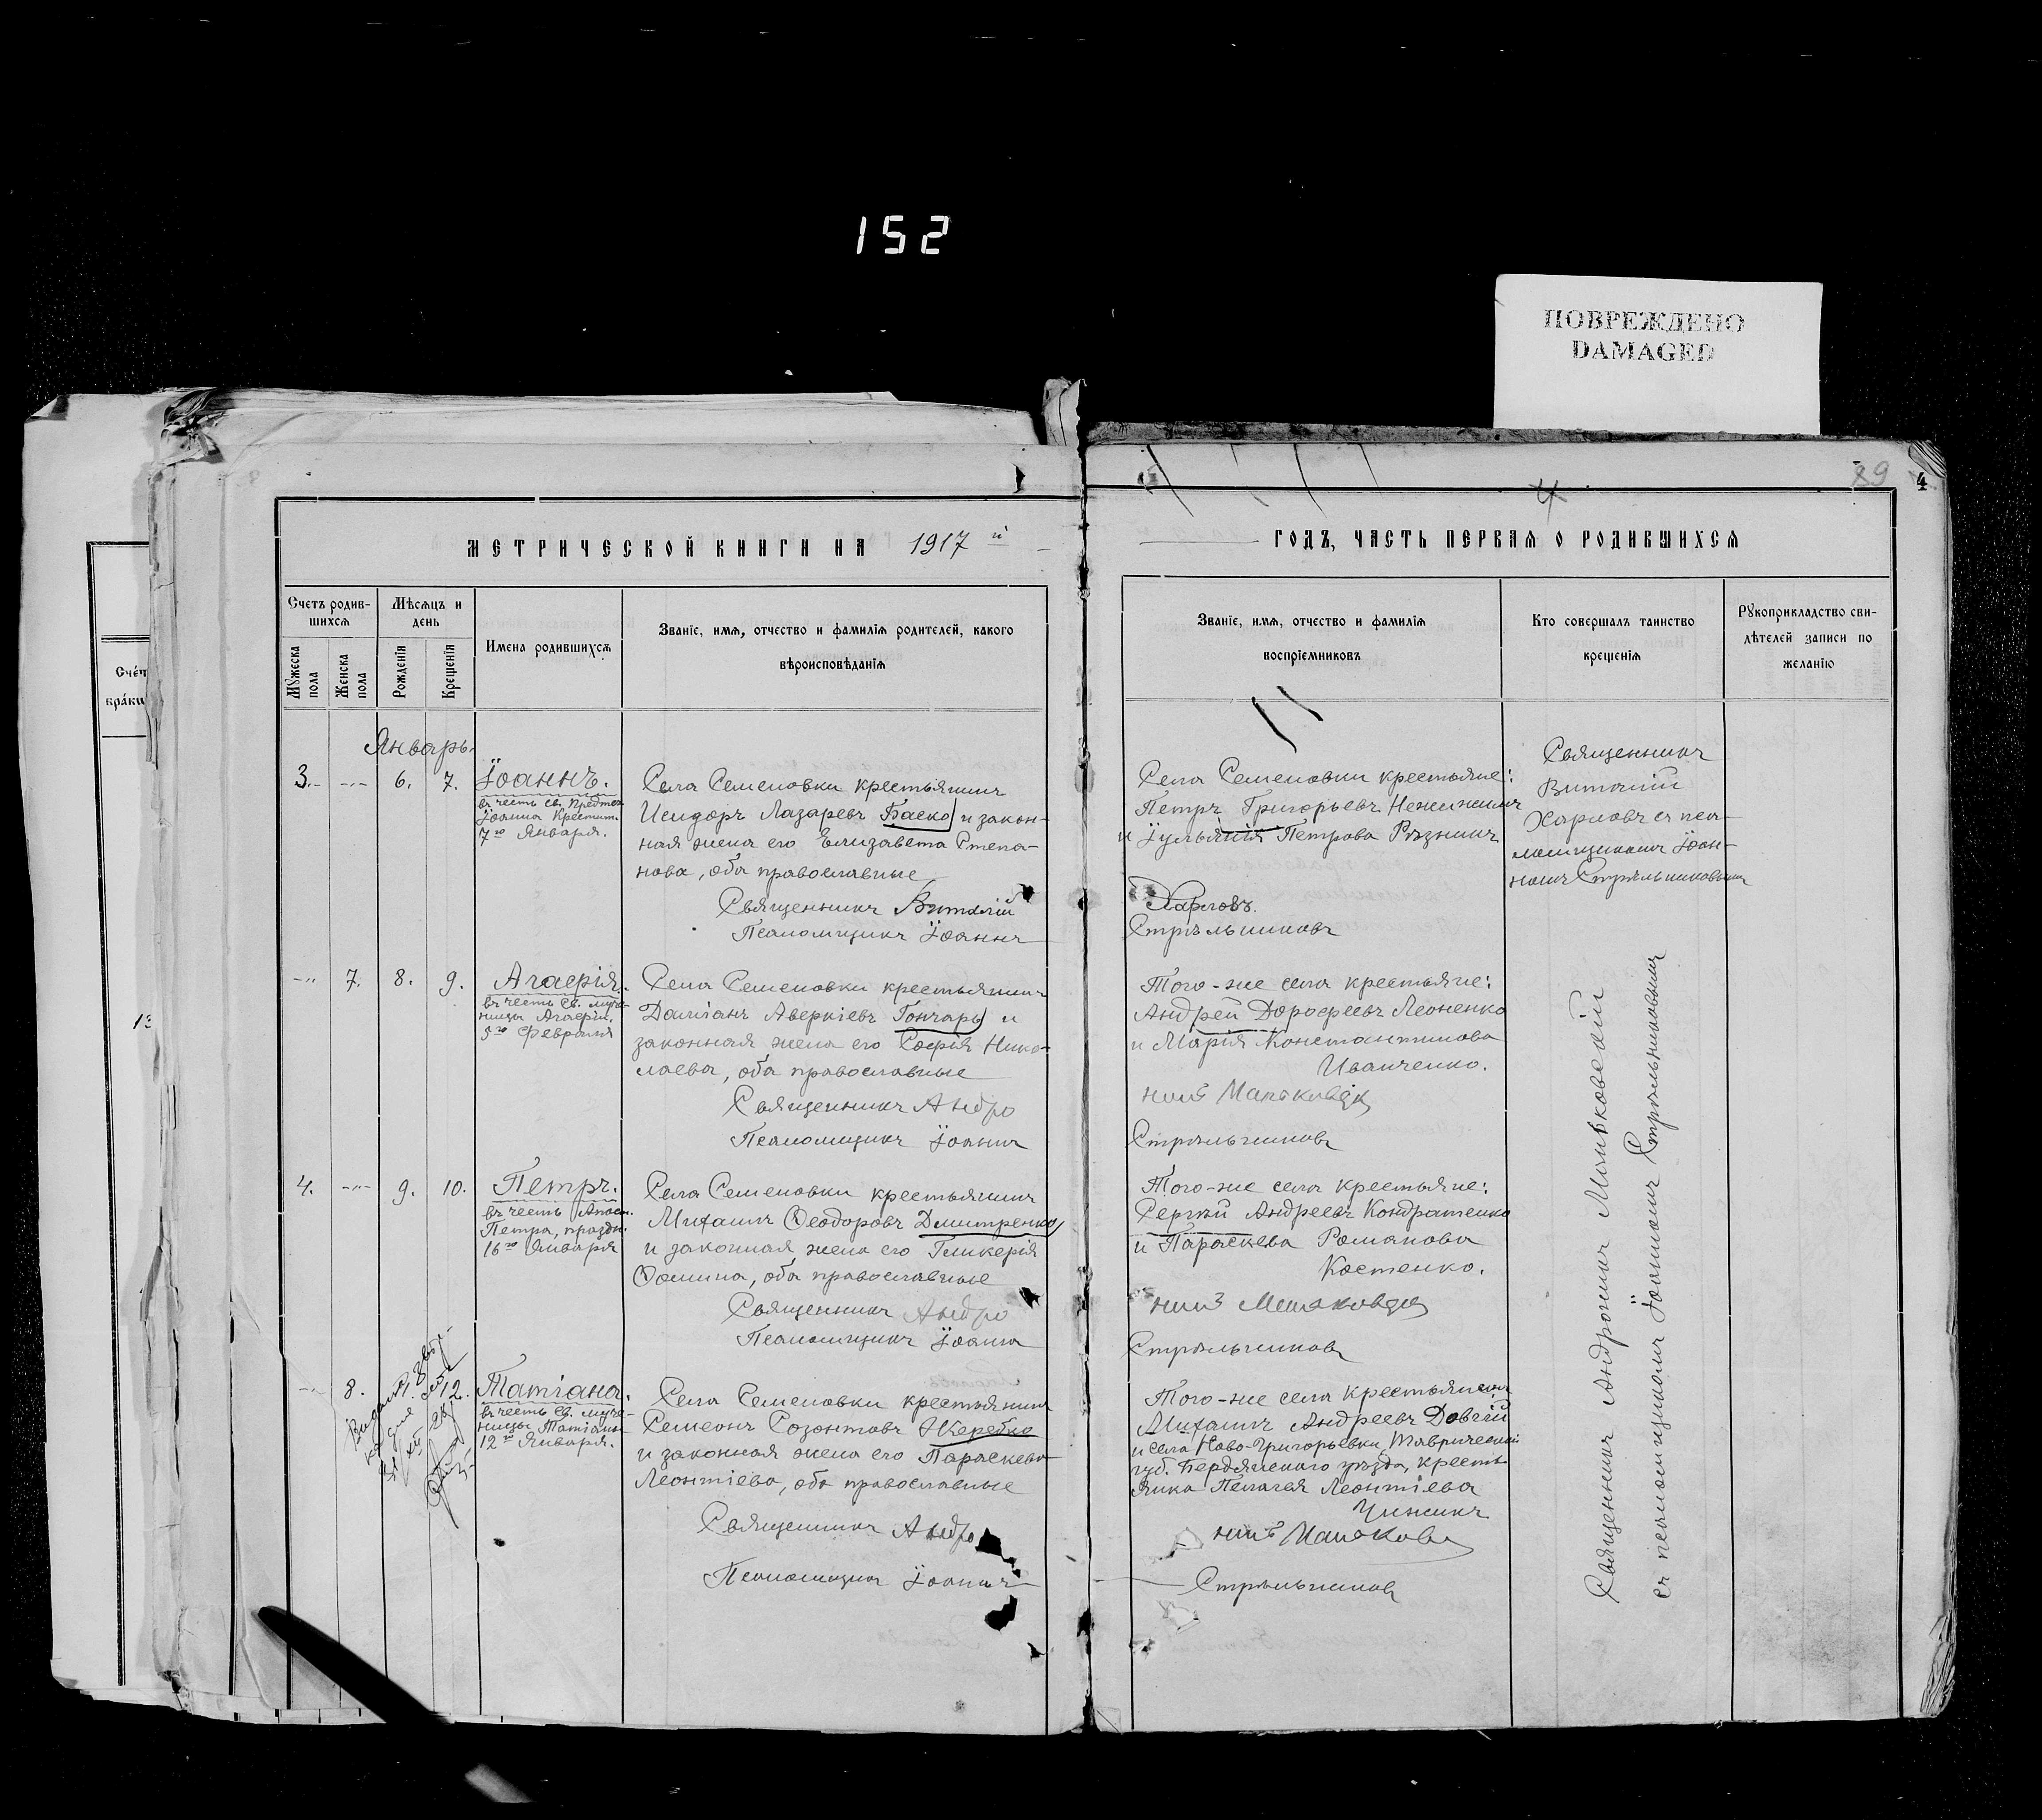 152
ПОВРЕЖДЕНО
DAMAGED
89
4
4
МЕТРИЧЕСКОЙ КНИГИ НА 1917 й
ГОДЪ, ЧАСТЬ ПЕРВАЯ О РОДИВШИХСЯ
Счетъ родив-
шихся
Мѣсяцъ и
день
Мужеска
пола
Женска
пола
Рожденія
Крещенія
Имена родившихся
Званіе, имя, отчество и фамилія родителей, какого
вѣроисповѣданія
Званіе, имя, отчество и фамилія
воспріемниковъ
Кто совершалъ таинство
крещенія
Рукоприкладство сви-
дѣтелей записи по
желанію
Счет
браки
13
Январь.
3. 6. 7. Іоаннъ.
въ честь св. Предтеч.
Іоанна Крестит.
7го Января.
Села Семеновки крестьянинъ
Исидоръ Лазаревъ Баско и закон-
ная жена его Елизавета Степа-
нова, оба православные
Священникъ Виталій
Псаломщикъ Іоаннъ
Села Семеновки крестьяне:
Петръ Григорьевъ Нежижимъ
и Іульянія Петрова Рѣзникъ
Харловъ.
Стрѣльниковъ
Священникъ
Виталій
Харловъ съ пса-
ломщикомъ Іоан-
номъ Стрѣльниковымъ
7. 8. 9. Агафія.
въ честь св. муче-
ницы Агафіи.
5го Февраля
Села Семеновки крестьянинъ
Даміанъ Аверкіевъ Гончаръ и
законная жена его Софія Нико-
лаева, оба православные
Священникъ Андро
Псаломщикъ Іоаннъ
Того-же села крестьяне:
Андрей Дорофеевъ Леоненко
и Марія Константинова
Иванченко.
Стрѣльниковъ
4. 9. 10. Петръ.
въ честь Апост.
Петра, праздн.
16го Января
Села Семеновки крестьянинъ
Михаилъ Ѳеодоровъ Дмитренко
и законная жена его Гликерія
Ѳомина, оба православные
Священникъ Андро
Псаломщикъ Іоаннъ
Того-же села крестьяне:
Сергѣй Андреевъ Кондратенко
и Параскева Романова
Костенко.
Стрѣльниковъ
8. 12. Татіана.
въ честь св. муче-
ницы Татіаны
12го Января.
Села Семеновки крестьянинъ
Семеонъ Созонтовъ Жеребко
и законная жена его Параскева
Леонтіева, оба православные
Священникъ Андро
Псаломщикъ Іоаннъ
Того-же села крестьянинъ
Михаилъ Андреевъ Довгій
и села Ново-Григорьевки, Таврической
губ. Бердянскаго уѣзда, кресть
янка Пелагея Леонтіева
Чижикъ
Стрѣльниковъ
Священникъ Андроникъ Маньковскій
съ псаломщикомъ Іоанномъ Стрѣльниковымъ